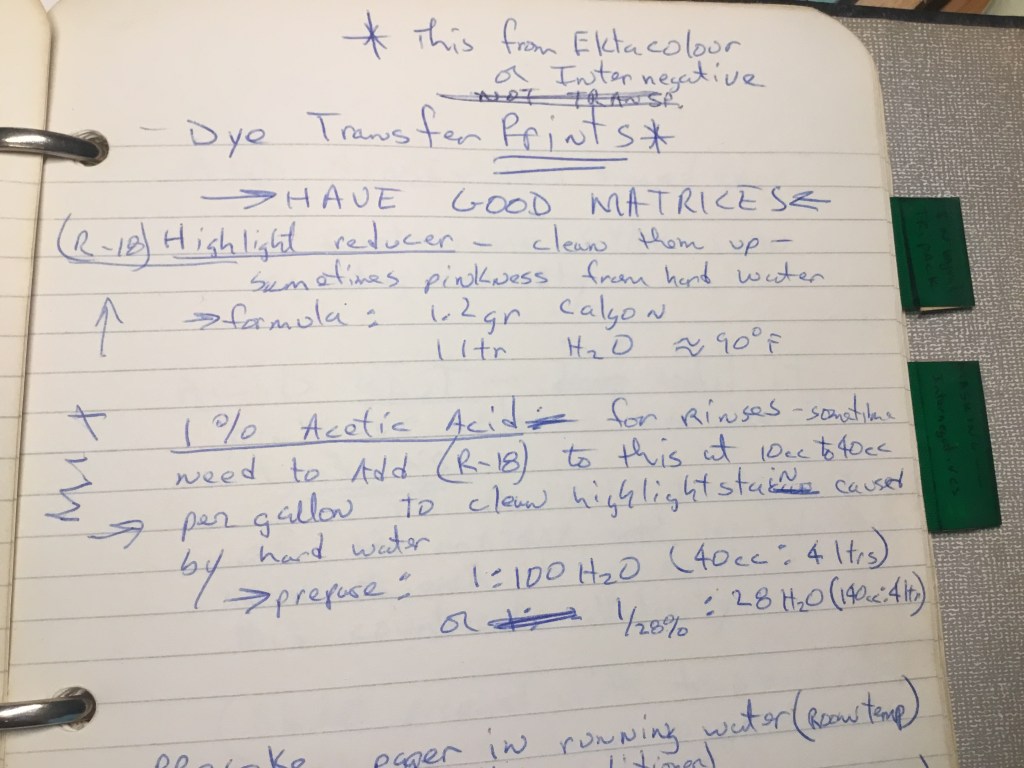 * This from Ektacolour
or Internegative
NOT TRANSP.
- Dye Transfer Prints *
→ HAVE GOOD MATRICES ←
(R-18) Highlight reducer - clean them up -
sometimes pinkness from hard water
↑ → formula : 1.2 gr Calgon
1 ltr H2O ≈ 90°F
+ 1% Acetic Acid - for Rinses - sometime
need to Add (R-18) to this at 10cc to 40cc
→ per gallon to clean highlight stain caused
by hard water
→ prepare : 1:100 H2O (40cc : 4 ltrs)
or 1/28% : 28 H2O (140cc:4ltr)
paper in running water (Room temp)